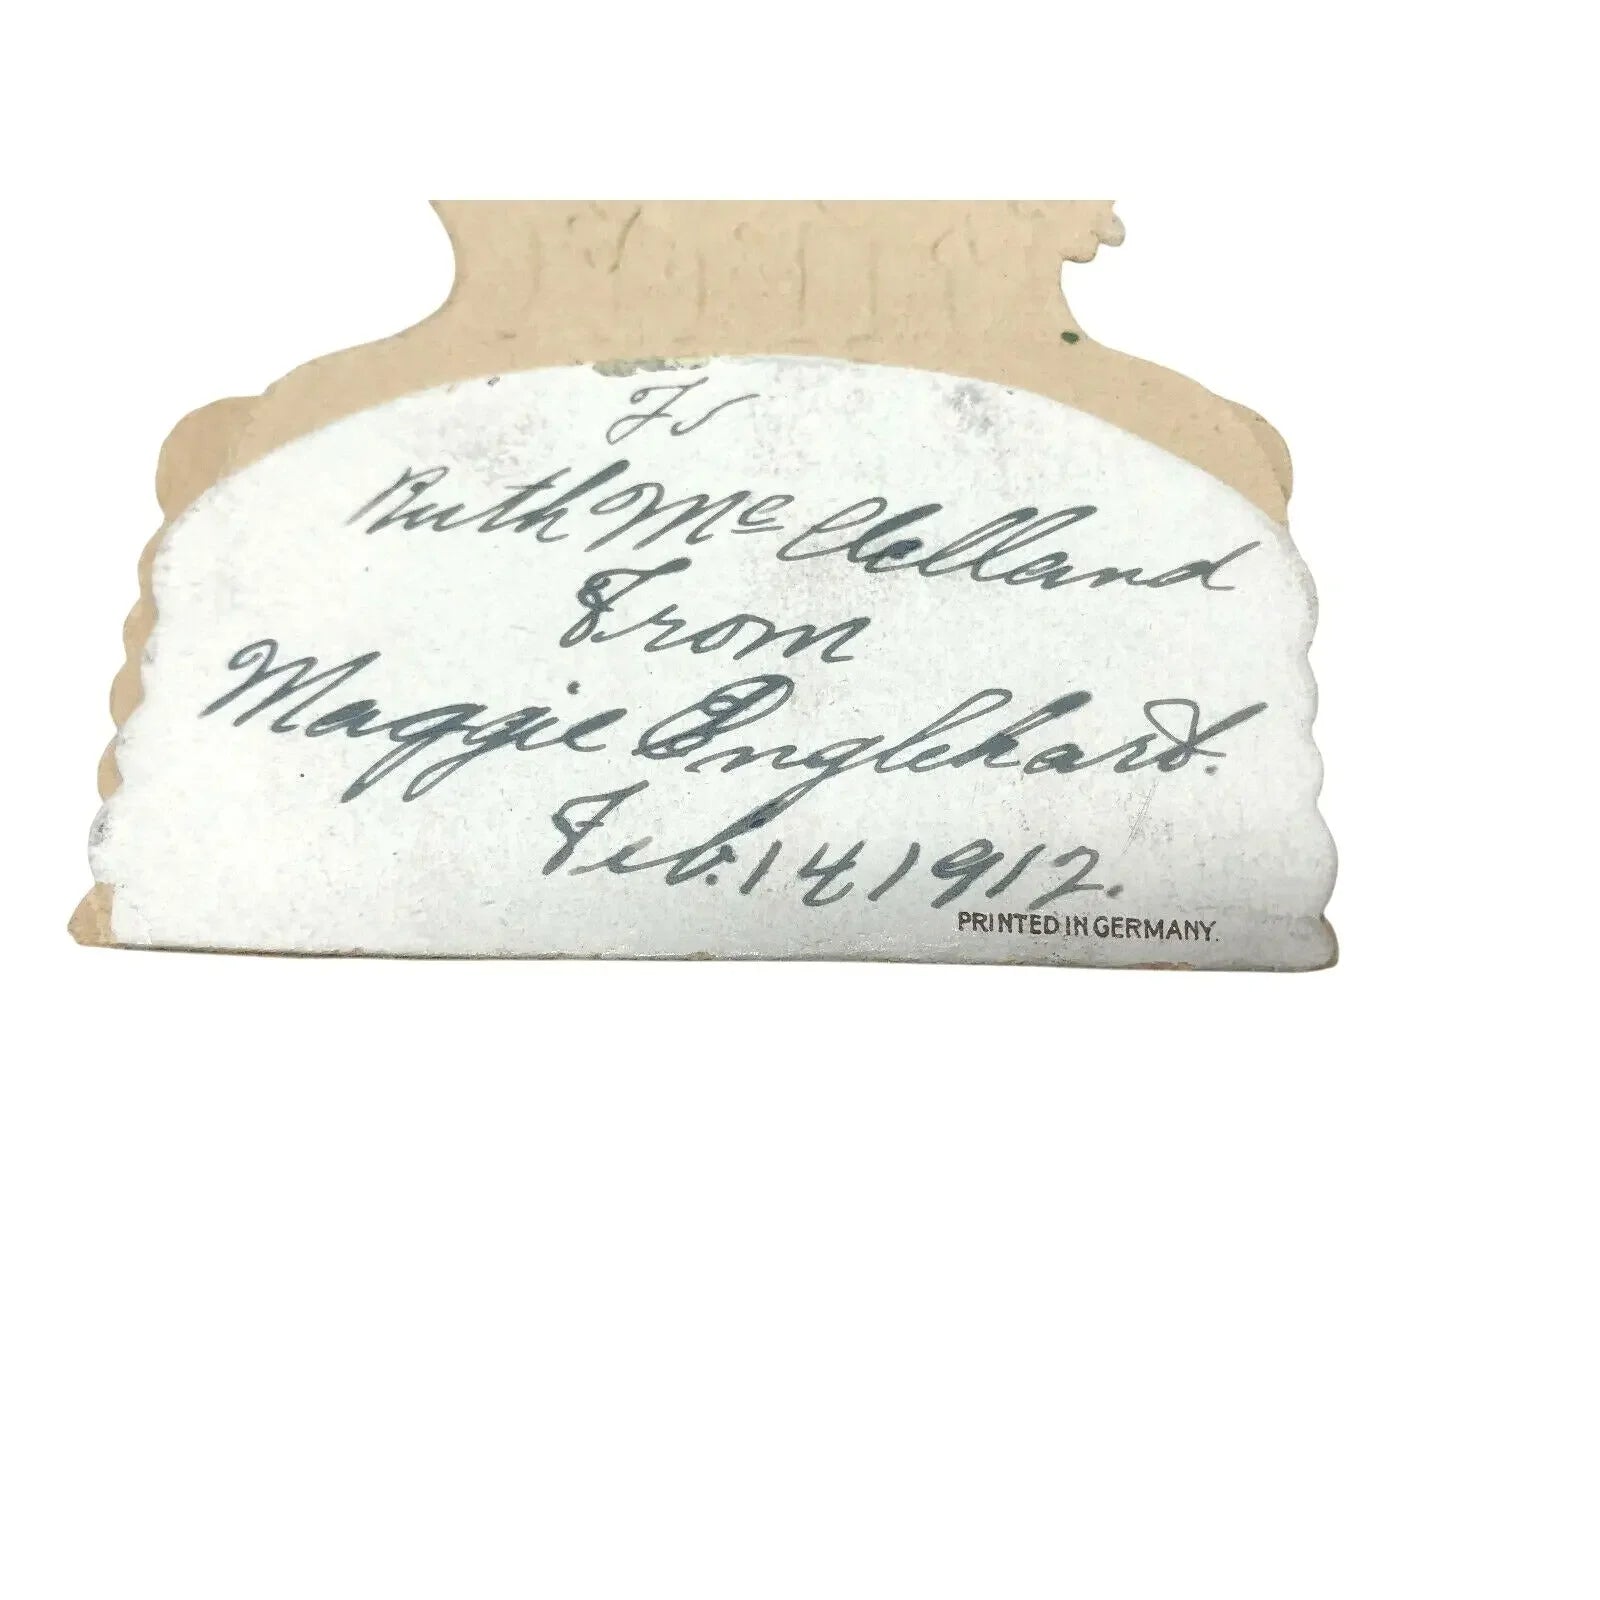 To
Ruth Mc Clelland
From
Maggie Englehart.
Feb. 14 1912.
PRINTED IN GERMANY.